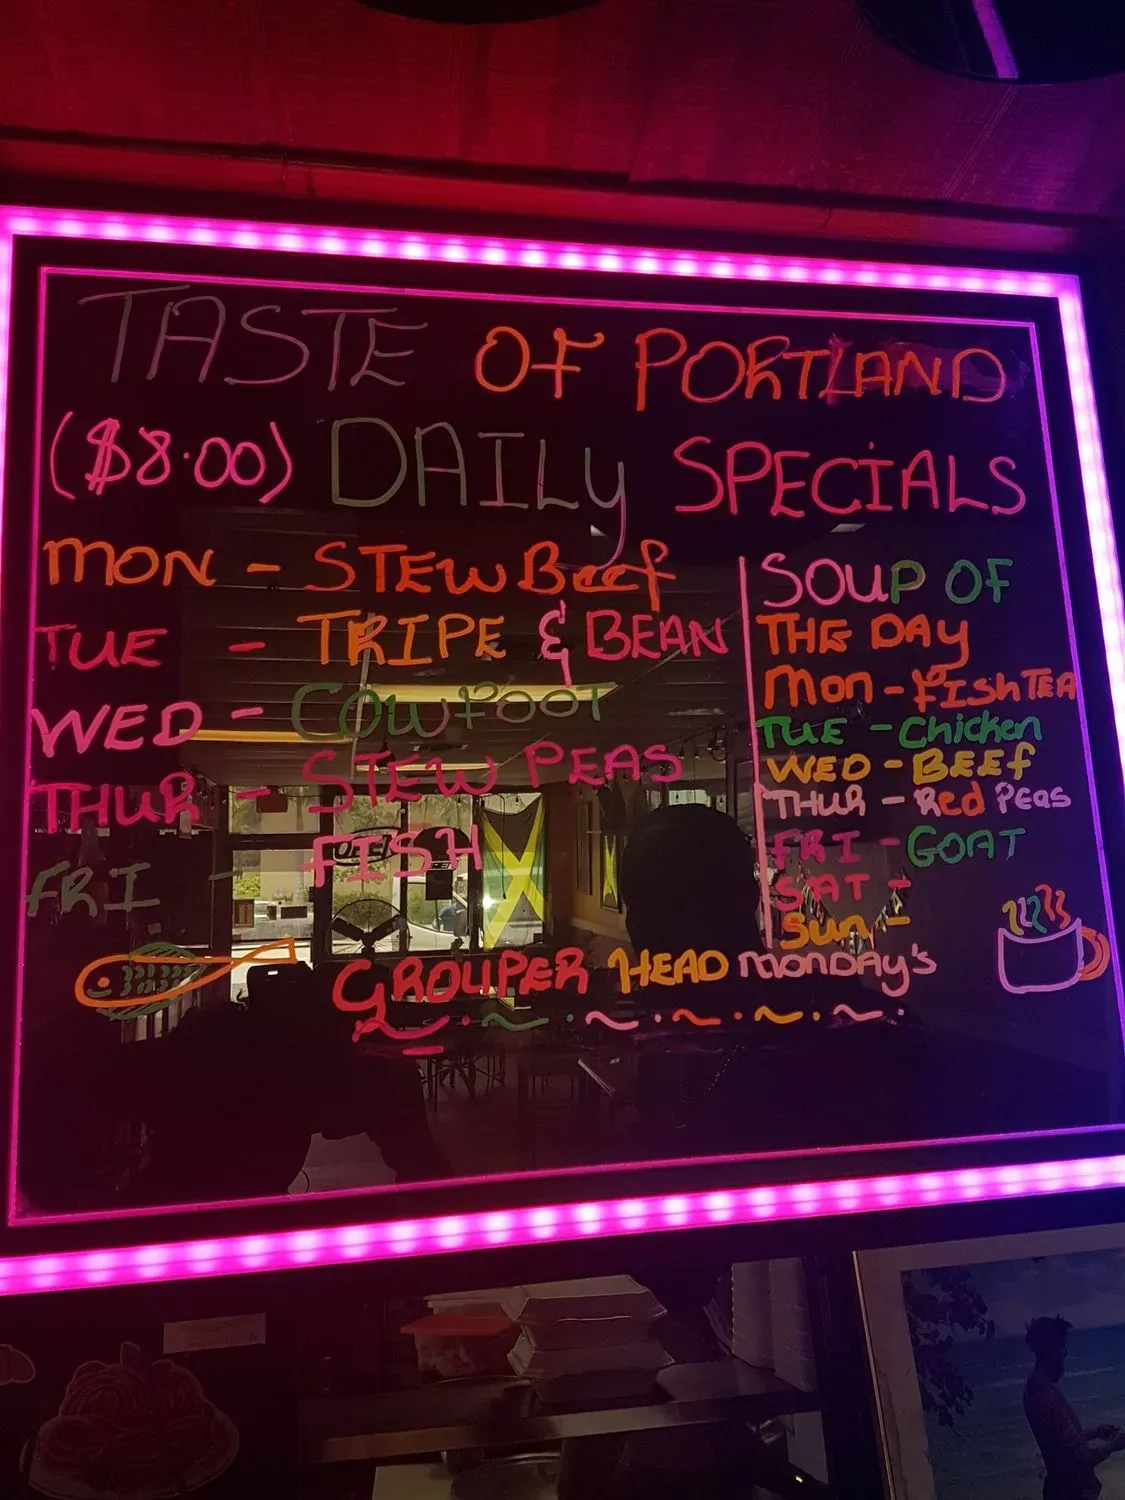 TASTE OF PORTLAND
($8.00) DAILY SPECIALS
MON - STEW Beef
TUE - TRIPE & BEAN
WED - COWFOOT
THUR - STEW PEAS
FRI - FISH
SOUP OF
THE DAY
Mon - FISh TEA
TUE - Chicken
WED - BEEf
THUR - Red Peas
FRI - GOAT
SAT -
Sun -
GROUPER HEAD MONDAY's
OPEN